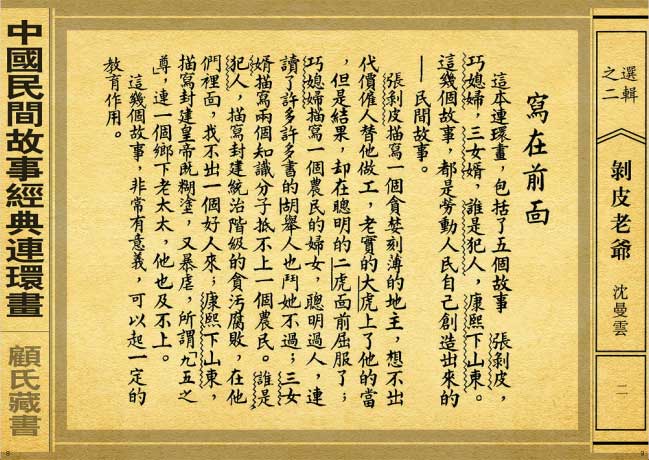 選輯
之二
剝皮老爺
沈曼雲
二
寫在前面
這本連環畫，包括了五個故事　張剝皮，
巧媳婦，三女婿，誰是犯人，康熙下山東。
這幾個故事，都是勞動人民自己創造出來的
——民間故事。
張剝皮描寫一個貪婪刻薄的地主，想不出
代價僱人替他做工，老實的大虎上了他的當
，但是結果，却在聰明的二虎面前屈服了；
巧媳婦描寫一個農民的婦女，聰明過人，連
讀了許多許多書的胡舉人也鬥她不過；三女
婿描寫兩個知識分子抵不上一個農民。誰是
犯人，描寫封建統治階級的貪污腐敗，在他
們裡面，找不出一個好人來；康熙下山東，
描寫封建皇帝既糊塗，又暴虐，所謂「九五之
尊」，連一個鄉下老太太，他也及不上。
這幾個故事，非常有意義，可以起一定的
教育作用。
中國民間故事經典連環畫
顧氏藏書
8
9